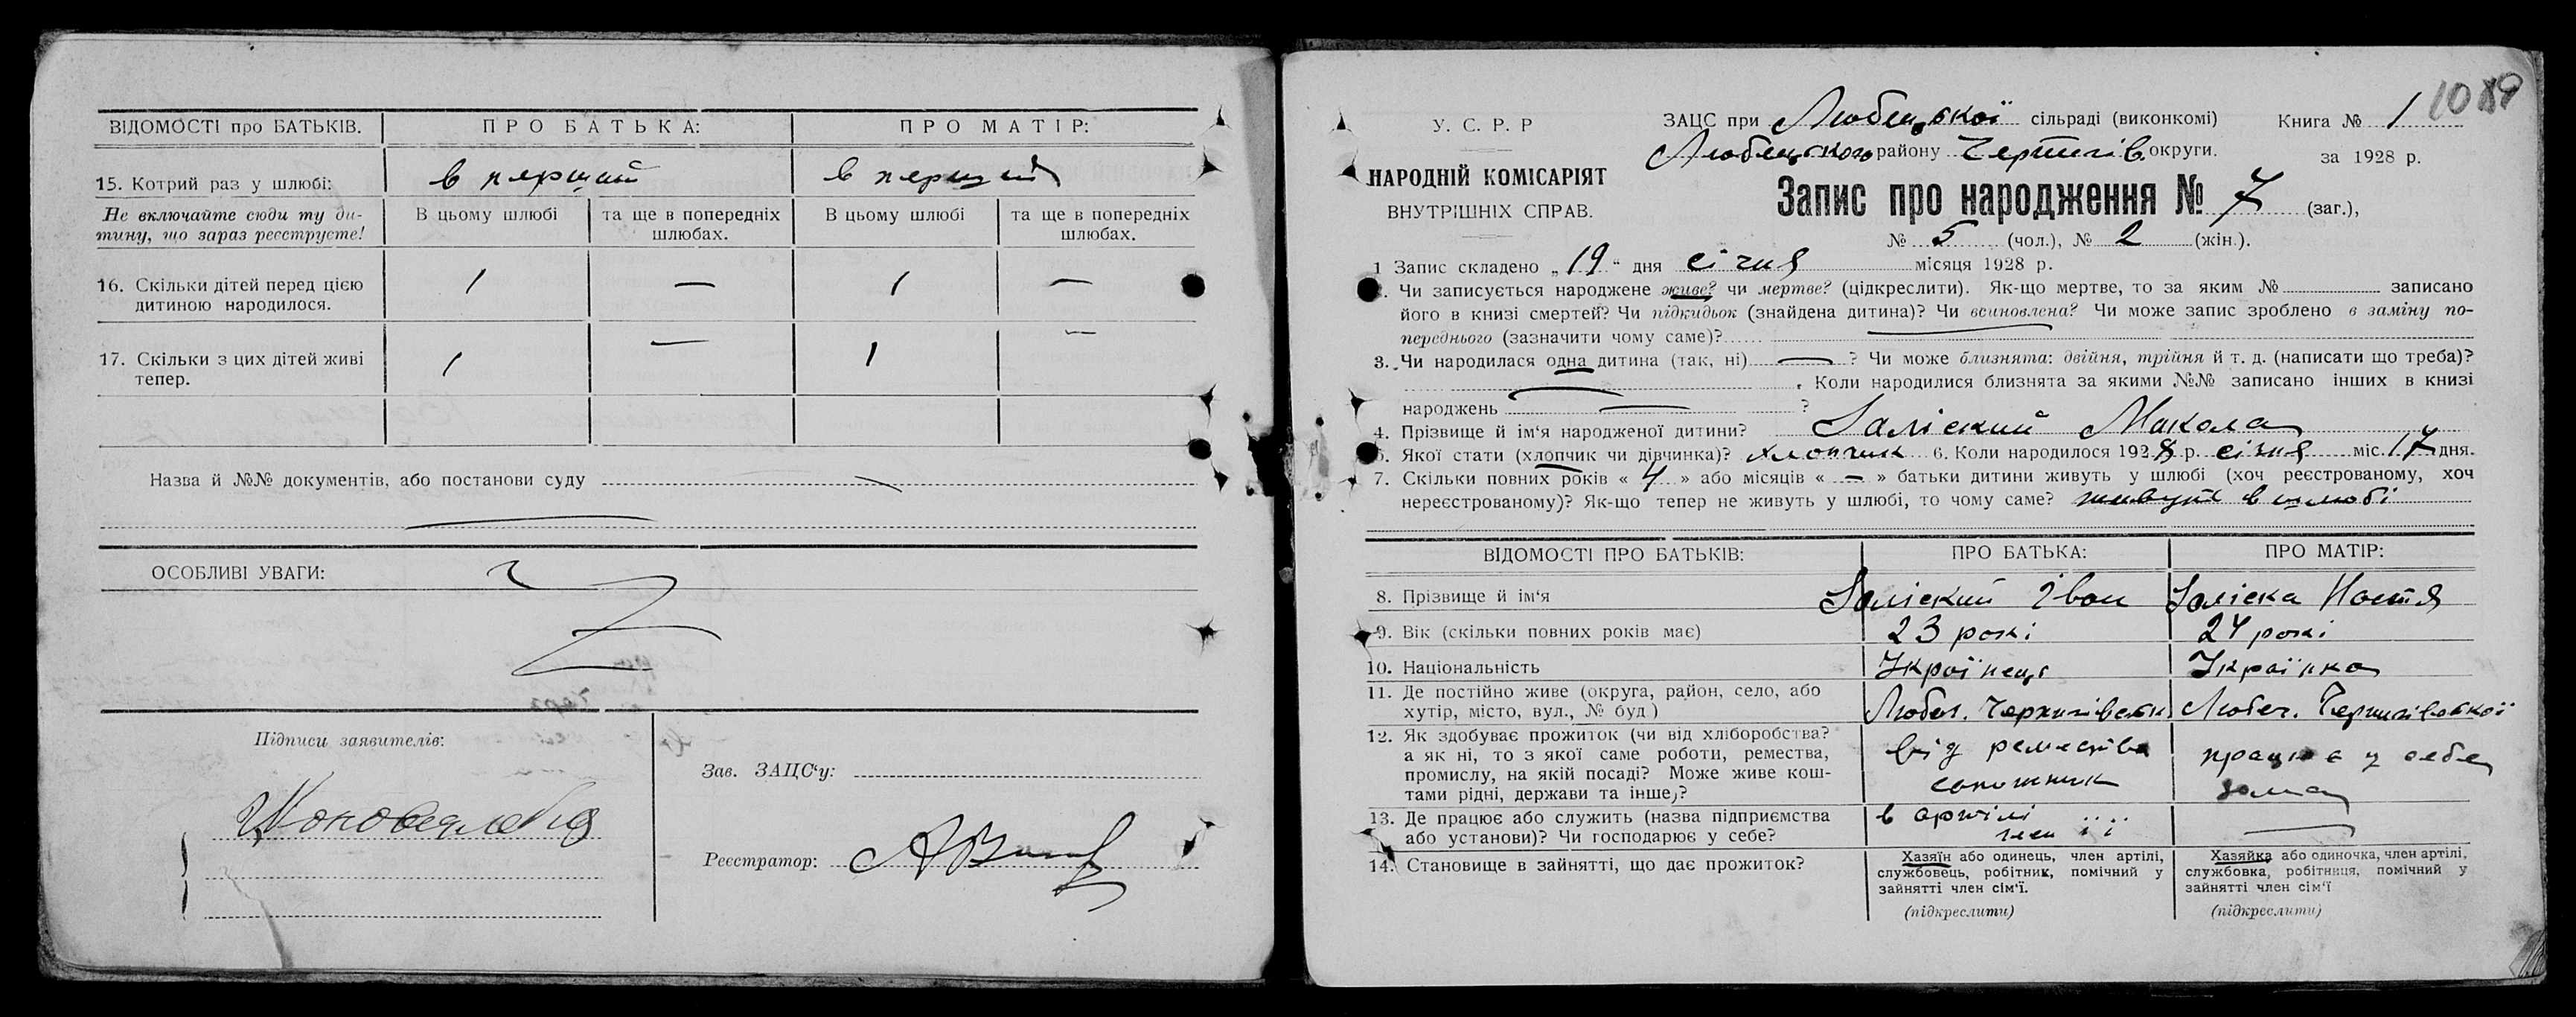 ВІДОМОСТІ про БАТЬКІВ. ПРО БАТЬКА: ПРО МАТІР:
15. Котрий раз у шлюбі: в перший в перший
Не включайте сюди ту ди- В цьому шлюбі та ще в попередніх В цьому шлюбі та ще в попередніх
тину, що зараз реєструєте! шлюбах. шлюбах.
16. Скільки дітей перед цією 1 — 1 —
дитиною народилося.
17. Скільки з цих дітей живі 1 — 1 —
тепер.
Назва й №№ документів, або постанови суду
ОСОБЛИВІ УВАГИ:
Підписи заявителів:
Зав. ЗАЦС‘у:
Реєстратор:
1089
У. С. Р. Р
ЗАЦС при Любецької сільраді (виконкомі) Книга № 1
Любецького району Чернігів округи. за 1928 р.
НАРОДНІЙ КОМІСАРІЯТ
ВНУТРІШНІХ СПРАВ.
Запис про народження № 7 (заг.),
№ 5 (чол.), № 2 (жін.).
1 Запис складено „19“ дня січня місяця 1928 р.
. Чи записується народжене живе? чи мертве? (цідкреслити). Як-що мертве, то за яким № записано
його в книзі смертей? Чи підкидьок (знайдена дитина)? Чи всиновлена? Чи може запис зроблено в заміну по-
переднього (зазначити чому саме)?
3. Чи народилася одна дитина (так, ні) — ? Чи може близнята: двійня, трійня й т. д. (написати що треба)?
— . Коли народилися близнята за якими №№ записано інших в книзі
народжень — ?
4. Прізвище й ім‘я народженої дитини? Заліский Микола
5. Якої стати (хлопчик чи дівчинка)? хлопчик 6. Коли народилося 1928 р. січня міс. 17 дня.
7. Скільки повних років « 4 » або місяців « — » батьки дитини живуть у шлюбі (хоч реєстрованому, хоч
нереєстрованому)? Як-що тепер не живуть у шлюбі, то чому саме? живуть в шлюбі
ВІДОМОСТІ ПРО БАТЬКІВ: ПРО БАТЬКА: ПРО МАТІР:
8. Прізвище й ім‘я Заліский Іван Заліска Настя
9. Вік (скільки повних років має) 23 рокі 24 рокі
10. Національність Україєць Українка
11. Де постійно живе (округа, район, село, або
хутір, місто, вул., № буд) Любеч. Чернигівськ Любеч. Чернигівської
12. Як здобуває прожиток (чи від хліборобства?
а як ні, то з якої саме роботи, ремества, від ремества працює у себе
промислу, на якій посаді? Може живе кош- сапожник дома
тами рідні, держави та інше,?
13. Де працює або служить (назва підприємства в артілі
або установи)? Чи господарює у себе? —
14. Становище в зайнятті, що дає прожиток? Хазяїн або одинець, член артілі, Хазяйка або одиночка, член артілі,
службовець, робітник, помічний у службовка, робітниця, помічний у
зайнятті член сім‘ї. зайнятті член сім‘ї
(підкреслити) (підкреслити)